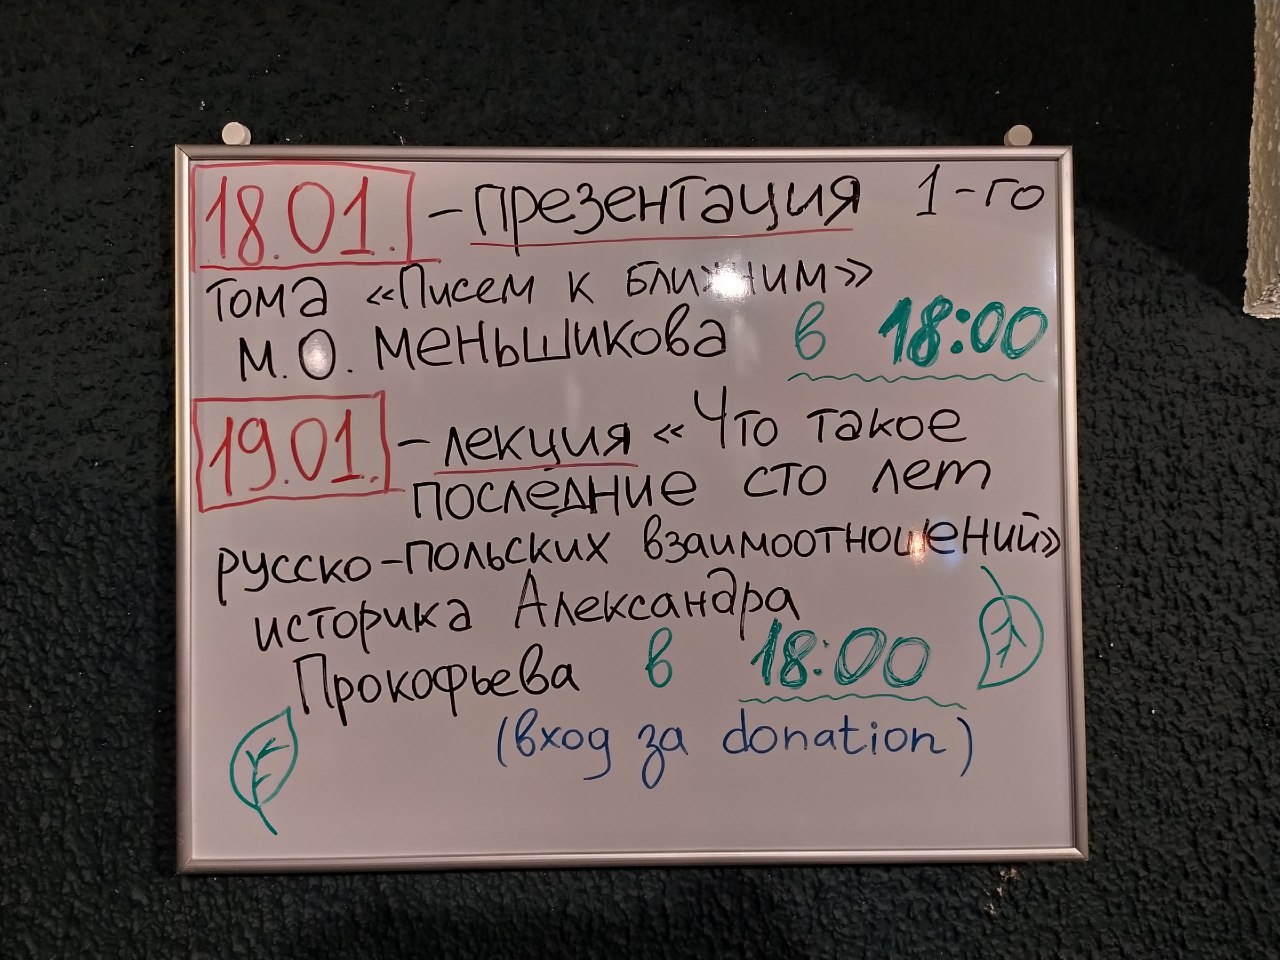 18.01. – презентация 1-го
тома «Писем к ближним»
М.О. Меньшикова в 18:00
19.01. – лекция «Что такое
последние сто лет
русско-польских взаимоотношений»
историка Александра
Прокофьева в 18:00
(вход за donation)